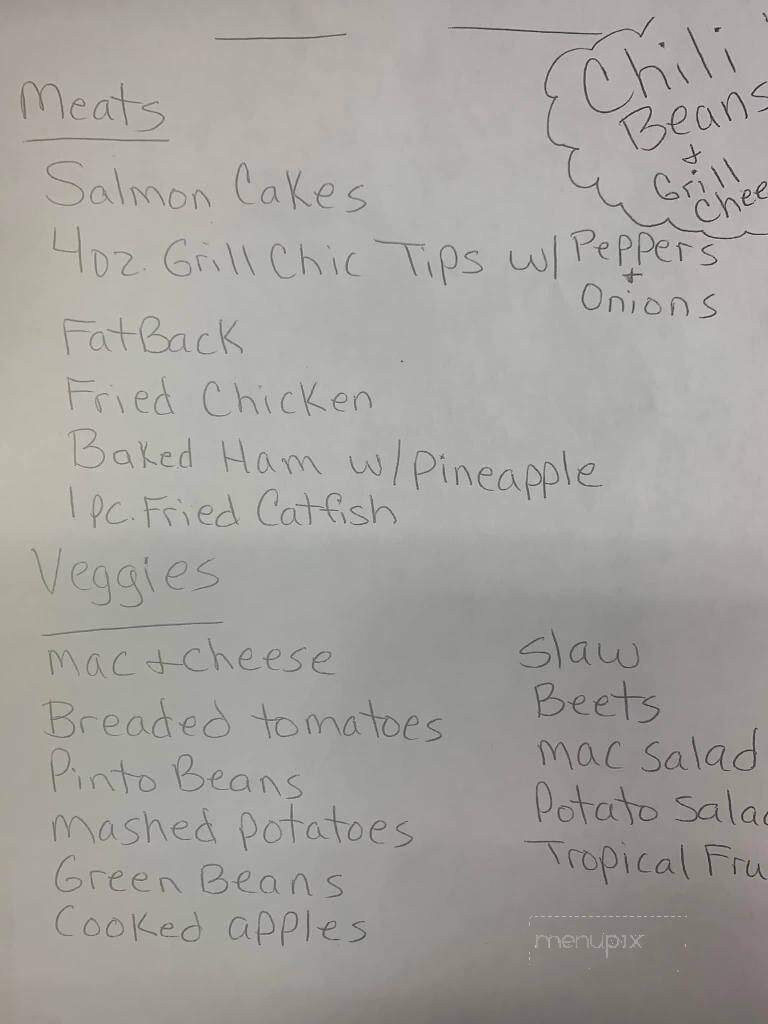 Chili
Beans
+
Grill
Chee
Meats
Salmon Cakes
4oz. Grill Chic Tips w/ Peppers
+
Onions
FatBack
Fried Chicken
Baked Ham w/Pineapple
1 pc. Fried Catfish
Veggies
mac + cheese
Breaded tomatoes
Pinto Beans
mashed potatoes
Green Beans
Cooked apples
Slaw
Beets
mac salad
Potato Salad
Tropical Fru
menupix